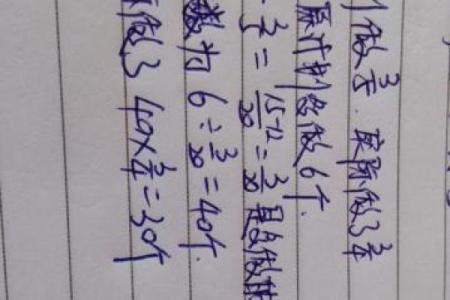 做3/5. 实际做了3/4
原计划多做6个.
-3/5=(15-12)/20=3/20 是多做
数为 6÷3/20=40个.
做了 40×3/4=30个